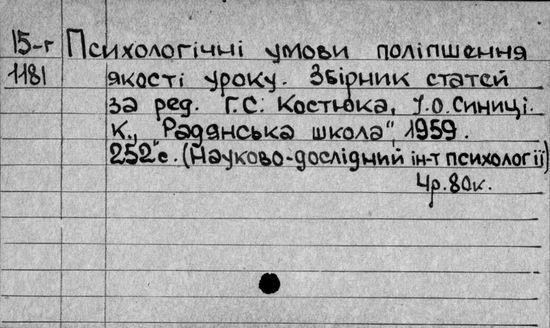 15-г Психологічні умови поліпшення
1181 якості уроку. Збірник статей
за ред. Г.С. Костюка, І.О. Синиці.
К., "Радянська школа", 1959.
252 с. (Науково-дослідний ін-т психології)
4р.80к.